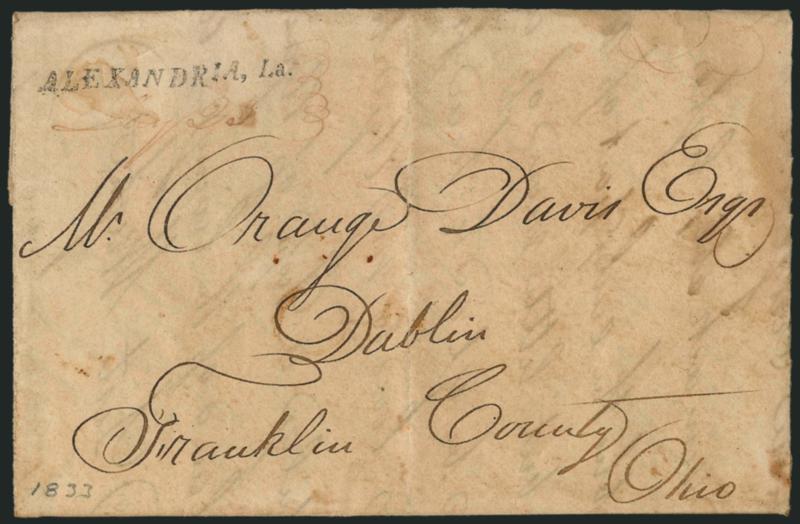 ALEXANDRIA, La.
Mr. Orange Davis Esqr
Dablin
Franklin County
Ohio
1833